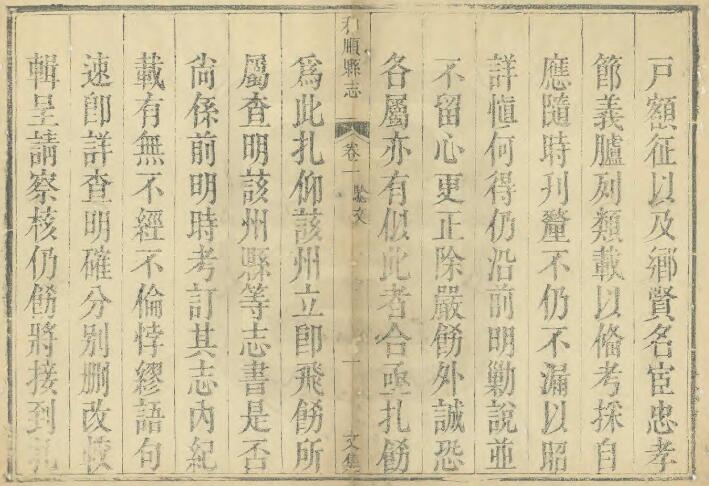 戸額征以及鄉賢名宦忠孝
節義臚列類載以俻考採自
應隨時刋釐不仍不漏以昭
詳慎何得仍沿前明勦說並
不留心更正除嚴飭外誠恐
各屬亦有似此者合亟扎飭
和順縣志
卷一
文
一
文集
爲此扎仰該州立卽飛飭所
屬查明該州縣等志書是否
尙係前明時考訂其志內紀
載有無不經不倫悖繆語句
速卽詳查明確分别刪改
輯呈請察核仍飭將接到